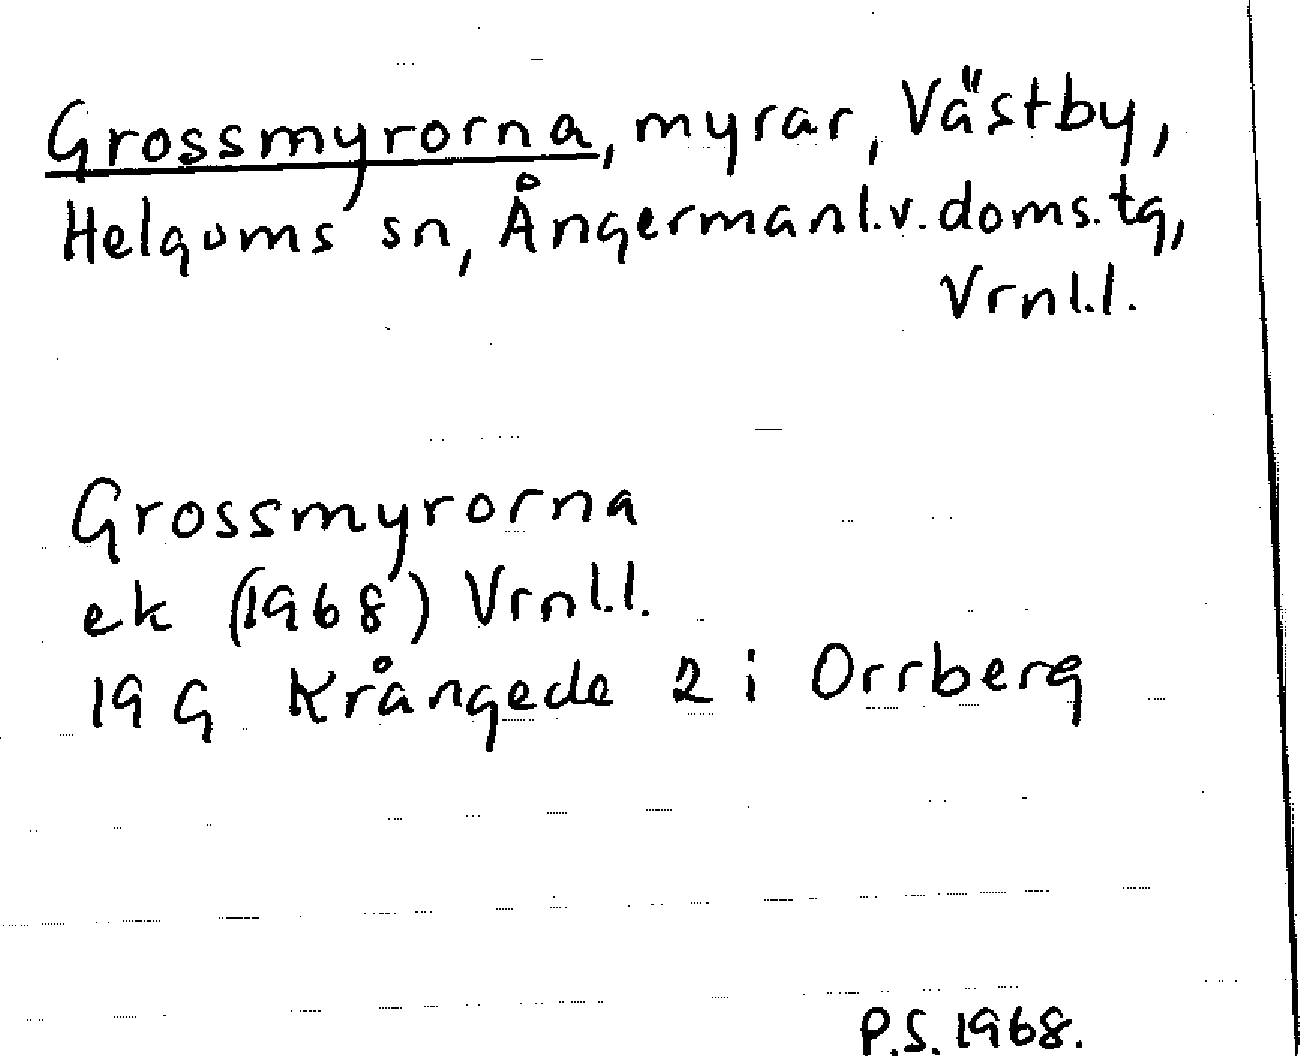 Grossmyrorna, myrar, Västby,
Helgums sn, Ångermanl.v.doms.tg,
Vrnl.l.
Grossmyrorna
ek (1968) Vrnl.l.
19 G Krångede 2 i Orrberg
P.S. 1968.